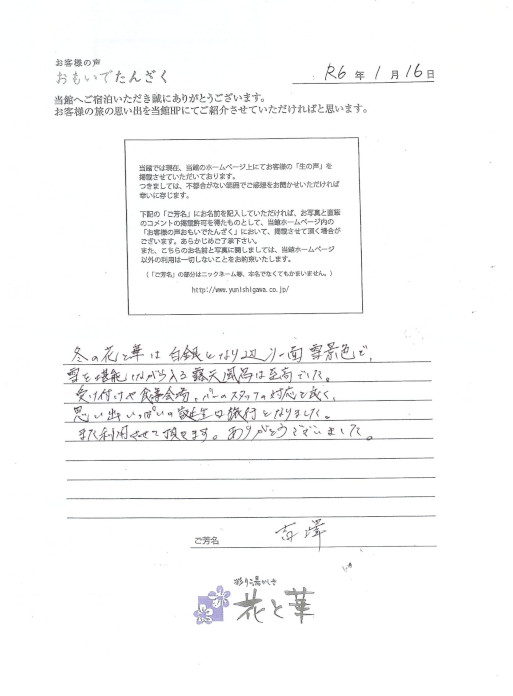 お客様の声
おもいでたんざく
R6年1月16日
当館へご宿泊いただき誠にありがとうございます。
お客様の旅の思い出を当館HPにてご紹介させていただければと思います。
当館では現在、当館のホームページ上にてお客様の「生の声」を
掲載させていただいております。
つきましては、不都合がない範囲でご感想をお聞かせいただければ
幸いに存じます。
下記の「ご芳名」にお名前を記入していただければ、お写真と直筆
のコメントの掲載許可を得たものとして、当館ホームページ内の
「お客様の声おもいでたんざく」において、掲載させて頂く場合が
ございます。あらかじめご了承下さい。
また、こちらのお名前と写真に関しましては、当館ホームページ
以外の利用は一切しないことをお約束いたします。
(「ご芳名」の部分はニックネーム等、本名でなくてもかまいません。)
http://www.yunishigawa.co.jp/
冬の花と華は白銀となり辺り一面雪景色で、
雪を堪能しながら入る露天風呂は至高でした。
受け付けや食事会場、バーのスタッフの対応も良く、
思い出いっぱいの誕生日旅行となりました。
また利用させて頂きます。ありがとうございました。
ご芳名 吉澤
彩り湯かしき
花と華